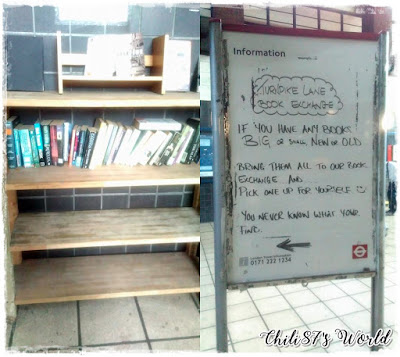 Information
TURNPIKE LANE
BOOK EXCHANGE
IF YOU HAVE ANY BOOKS
BIG OR SMALL NEW OR OLD
BRING THEM ALL TO OUR BOOK
EXCHANGE AND
PICK ONE UP FOR YOURSELF
YOU NEVER KNOW WHAT YOUR
FIND.
0171 222 1234
Chili87's World